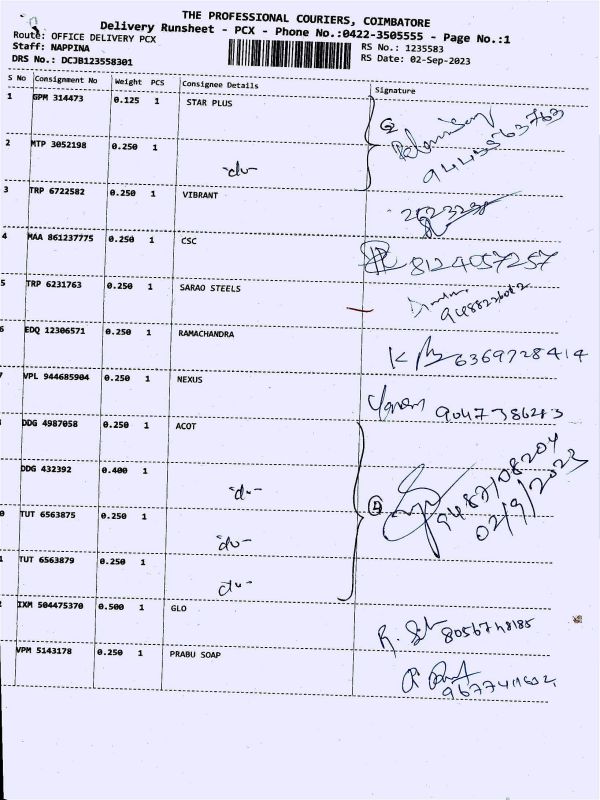 THE PROFESSIONAL COURIERS, COIMBATORE
Delivery Runsheet - PCX - Phone No.:0422-3505555 - Page No.:1
Route: OFFICE DELIVERY PCX
RS No.: 1235583
Staff: NAPPINA
RS Date: 02-Sep-2023
DRS No.: DCJB123558301
S No Consignment No Weight PCS Consignee Details Signature
1 GPM 314473 0.125 1 STAR PLUS
2 MTP 3052198 0.250 1 -do-
3 TRP 6722582 0.250 1 VIBRANT
4 MAA 861237775 0.250 1 CSC
8124057257
5 TRP 6231763 0.250 1 SARAO STEELS
6 EDQ 12306571 0.250 1 RAMACHANDRA
6369728414
VPL 944685904 0.250 1 NEXUS
DDG 4987058 0.250 1 ACOT
DDG 432392 0.400 1 -do-
02/9/2023
0 TUT 6563875 0.250 1 -do-
1 TUT 6563879 0.250 1 -do-
2 IXM 504475370 0.500 1 GLO
8056748185
VPM 5143178 0.250 1 PRABU SOAP